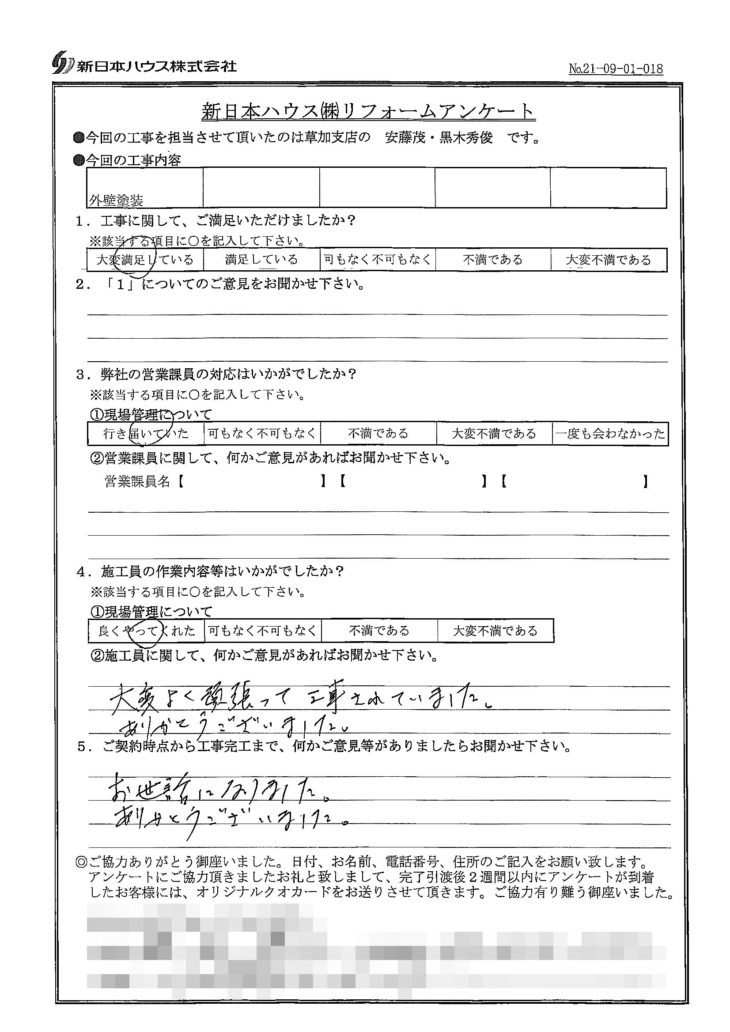 新日本ハウス株式会社
No.21-09-01-018
新日本ハウス㈱リフォームアンケート
●今回の工事を担当させて頂いたのは草加支店の 安藤茂・黒木秀俊 です。
●今回の工事内容
外壁塗装
1．工事に関して、ご満足いただけましたか？
※該当する項目に○を記入して下さい。
大変満足している 満足している 可もなく不可もなく 不満である 大変不満である
2．「1」についてのご意見をお聞かせ下さい。
3．弊社の営業課員の対応はいかがでしたか？
※該当する項目に○を記入して下さい。
①現場管理について
行き届いていた 可もなく不可もなく 不満である 大変不満である 一度も会わなかった
②営業課員に関して、何かご意見があればお聞かせ下さい。
営業課員名【 】【 】【 】
4．施工員の作業内容等はいかがでしたか？
※該当する項目に○を記入して下さい。
①現場管理について
良くやってくれた 可もなく不可もなく 不満である 大変不満である
②施工員に関して、何かご意見があればお聞かせ下さい。
大変よく頑張って工事されていました。
ありがとうございました。
5．ご契約時点から工事完工まで、何かご意見等がありましたらお聞かせ下さい。
お世話になりました。
ありがとうございました。
◎ご協力ありがとう御座いました。日付、お名前、電話番号、住所のご記入をお願い致します。
アンケートにご協力頂きましたお礼と致しまして、完了引渡後2週間以内にアンケートが到着
したお客様には、オリジナルクオカードをお送りさせて頂きます。ご協力有り難う御座いました。